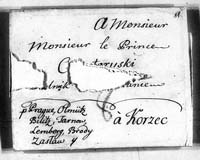 A Monsieur
Monsieur le Prince
toryski
à Korzec
p Prague, Olmütz
Bilitz, Tarnow
Lemberg, Brody
Zaslaw